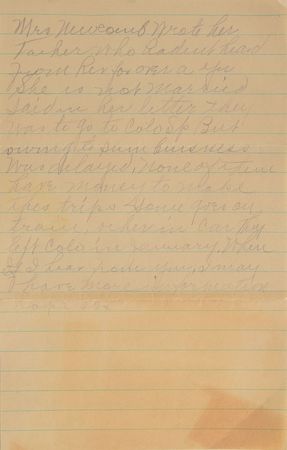 Mrs Newcomb wrote her
Father, who hadent head
from her for over a yer
She is not Married
Said in her letter They
was to go to Colo But
owing to sum buisness
Was delayed, None of
have money to make
thes trips Some goes on
train, others in Car They
left Colo in January, When
If I hear from you, I may
I have More information